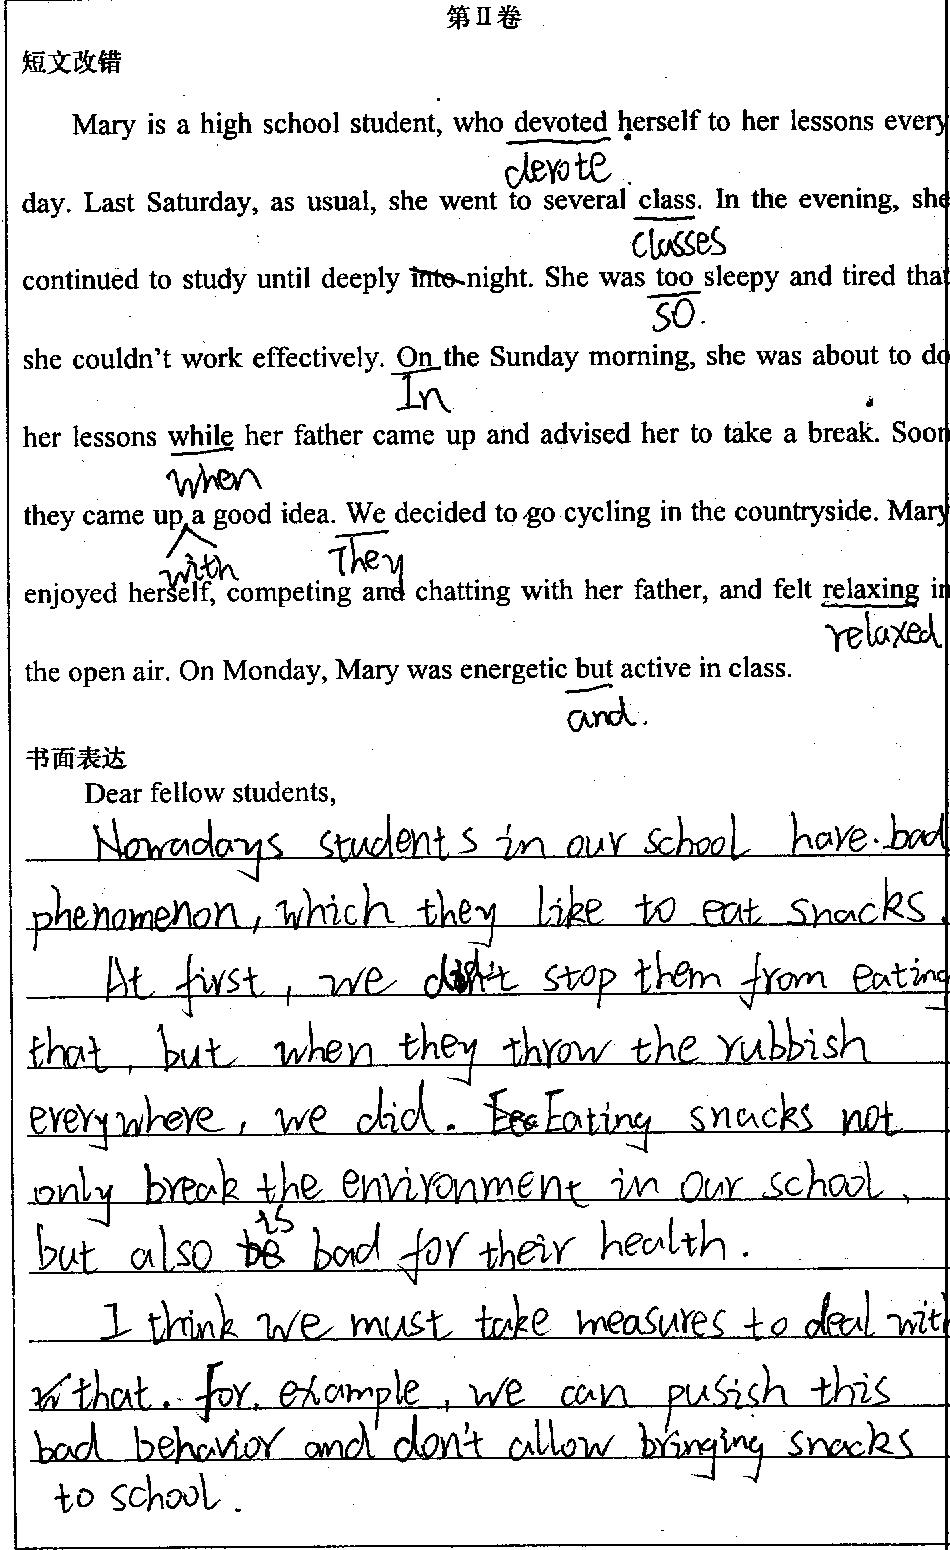 第Ⅱ卷
短文改错
Mary is a high school student, who devoted herself to her lessons every
devote
day. Last Saturday, as usual, she went to several class. In the evening, she
classes
continued to study until deeply into night. She was too sleepy and tired that
so.
she couldn't work effectively. On the Sunday morning, she was about to do
In
her lessons while her father came up and advised her to take a break. Soon
when
they came up a good idea. We decided to go cycling in the countryside. Mary
with They
enjoyed herself, competing and chatting with her father, and felt relaxing in
relaxed
the open air. On Monday, Mary was energetic but active in class.
and.
书面表达
Dear fellow students,
Nowadays students in our school have bad
phenomenon, which they like to eat snacks.
At first, we didn't stop them from eating
that, but when they throw the rubbish
everywhere, we did. Eating snacks not
only break the environment in our school,
is
but also be bad for their health.
I think we must take measures to deal with
that. For example, we can pusish this
bad behavior and don't allow bringing snacks
to school.